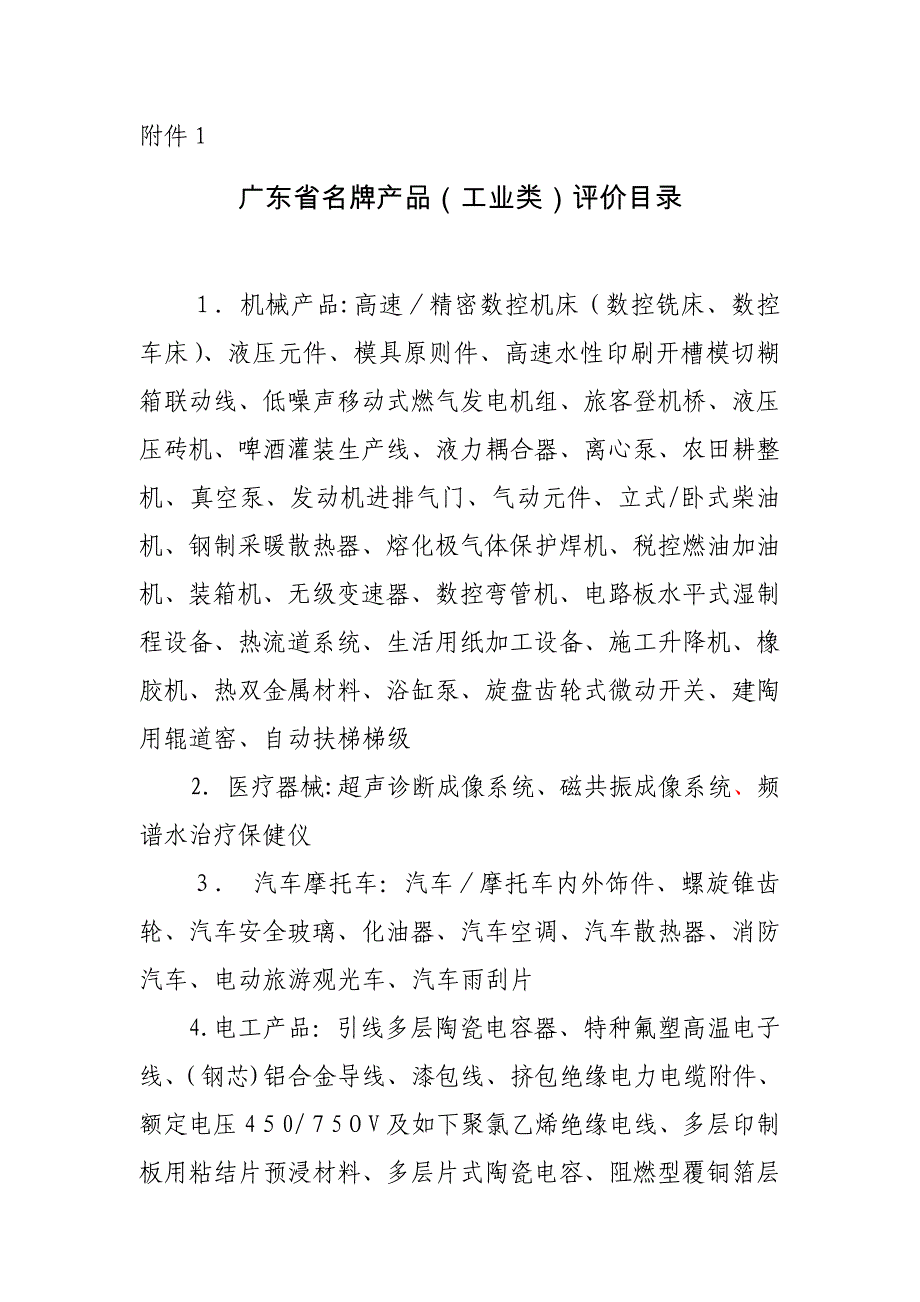 附件1
广东省名牌产品(工业类)评价目录
1. 机械产品:高速/精密数控机床(数控铣床、数控
车床)、液压元件、模具原则件、高速水性印刷开槽模切糊
箱联动线、低噪声移动式燃气发电机组、旅客登机桥、液压
压砖机、啤酒灌装生产线、液力耦合器、离心泵、农田耕整
机、真空泵、发动机进排气门、气动元件、立式/卧式柴油
机、钢制采暖散热器、熔化极气体保护焊机、税控燃油加油
机、装箱机、无级变速器、数控弯管机、电路板水平式湿制
程设备、热流道系统、生活用纸加工设备、施工升降机、橡
胶机、热双金属材料、浴缸泵、旋盘齿轮式微动开关、建陶
用辊道窑、自动扶梯梯级
2. 医疗器械:超声诊断成像系统、磁共振成像系统、频
谱水治疗保健仪
3. 汽车摩托车: 汽车/摩托车内外饰件、螺旋锥齿
轮、汽车安全玻璃、化油器、汽车空调、汽车散热器、消防
汽车、电动旅游观光车、汽车雨刮片
4.电工产品: 引线多层陶瓷电容器、特种氟塑高温电子
线、(钢芯)铝合金导线、漆包线、挤包绝缘电力电缆附件、
额定电压450/750V及如下聚氯乙烯绝缘电线、多层印制
板用粘结片预浸材料、多层片式陶瓷电容、阻燃型覆铜箔层